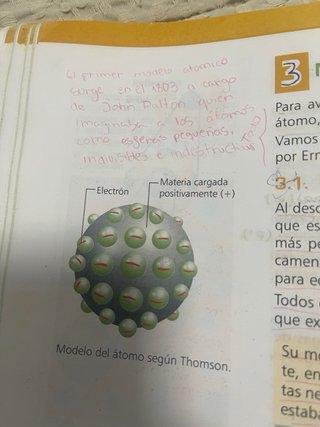 El primer modelo atomico
surge en el 1803 a cargo
de John Dalton quien
imaginaba a los átomos
como esferas pequeñas,
indivisibles e indestructibles
Electrón
Materia cargada
positivamente (+)
Modelo del átomo según Thomson.
3
Para av
átomo,
Vamos
por Ern
3.1.
Al desc
que es
más pe
camen
para ec
Todos
que ex
Su mo
te, en
tas ne
estaba